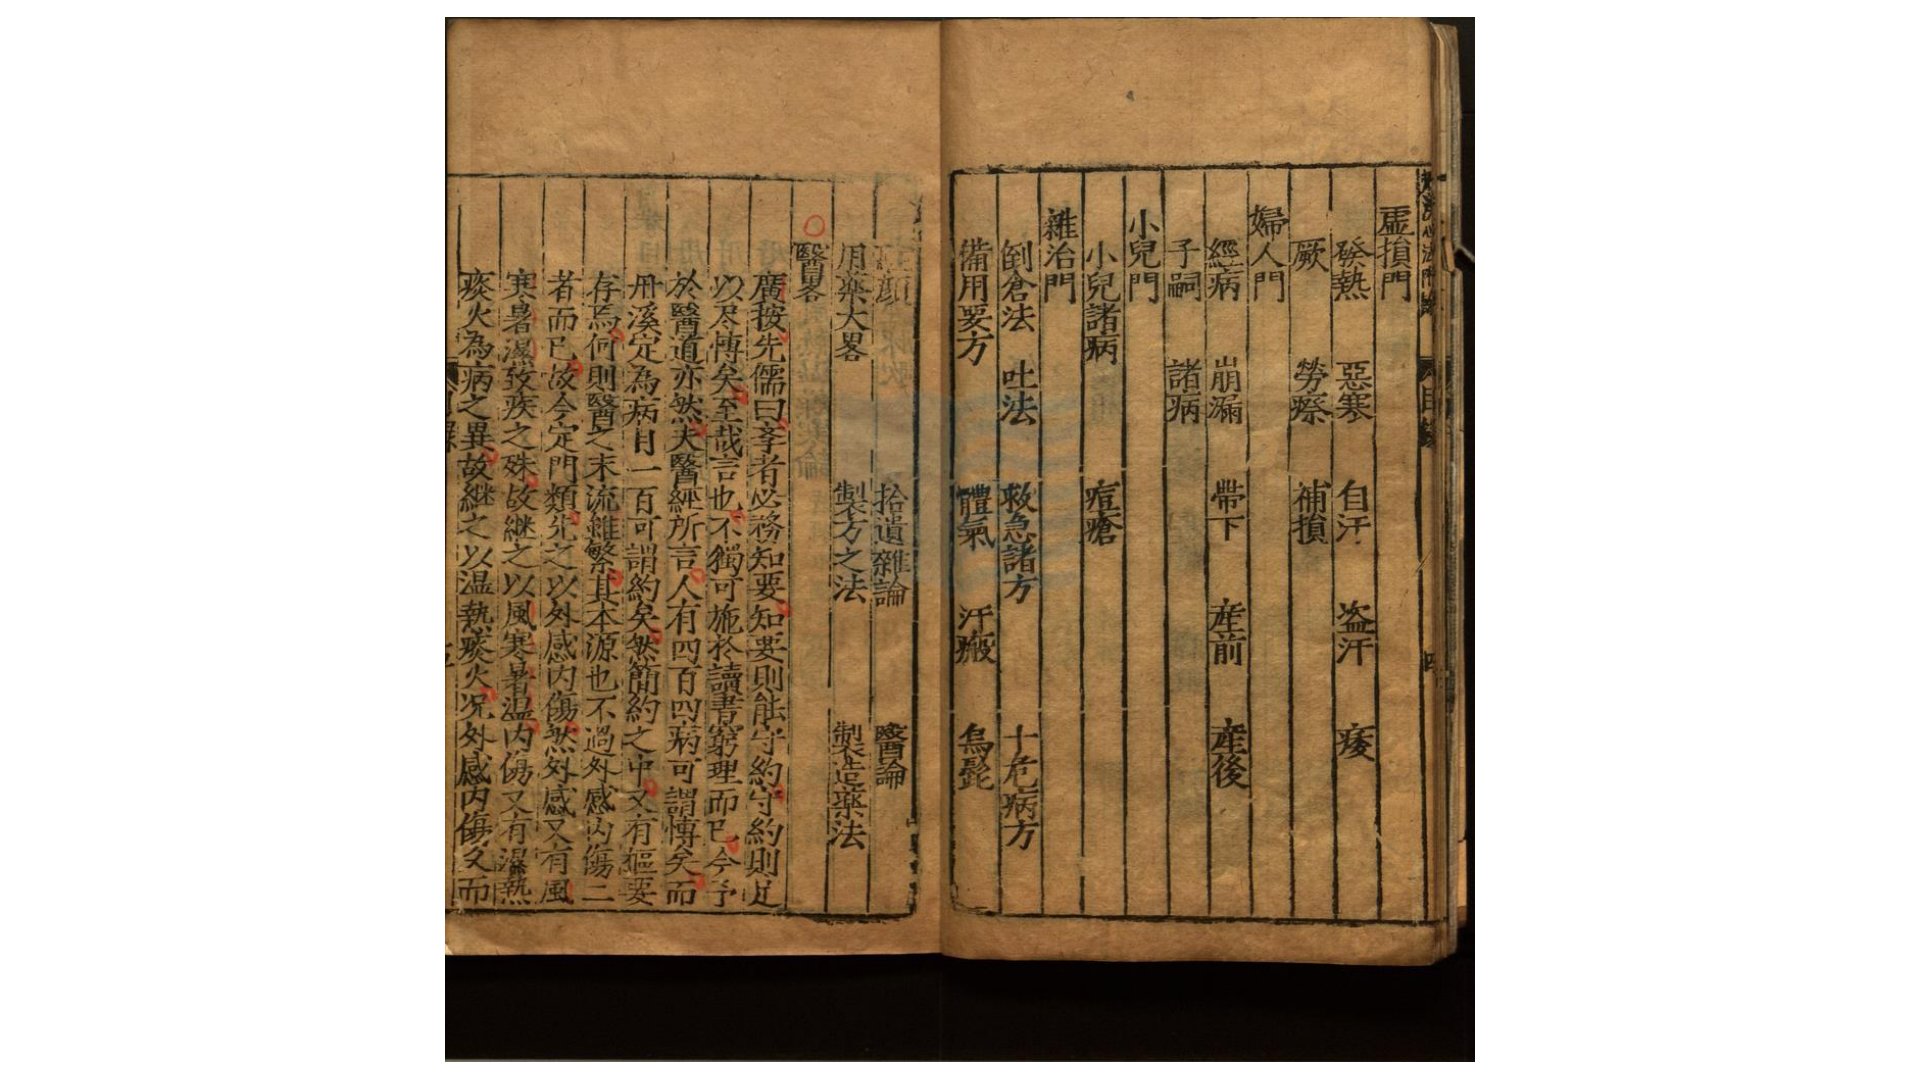 虛損門
發熱 惡寒 自汗 盗汗 痿
厥 勞瘵 補損
婦人門
經病 崩漏 帶下 産前 産後
子嗣 諸病
小兒門
小兒諸病 痘瘡
雜治門
倒倉法 吐法 救急諸方 十危病方
備用要方 體氣 汗瘢 烏髭
拾遺雜論 醫論
用藥大畧 製方之法 製造藥法
醫畧
廣按先儒曰孝者必務知要知要則能守約守約則足
以尽慱矣至哉言也不獨可施於讀書窮理而已今予
於醫道亦然夫醫經所言人有四百四病可謂慱矣而
丹溪定為病目一百可謂約矣然簡約之中又有樞要
存焉何則醫之末流雖繁其本源也不過外感内傷二
者而已故今定門類先之以外感内傷然外感又有風
寒暑濕致疾之殊故継之以風寒暑温内傷又有濕熱
痰火為病之異故継之以温熱痰火况外感内傷久而